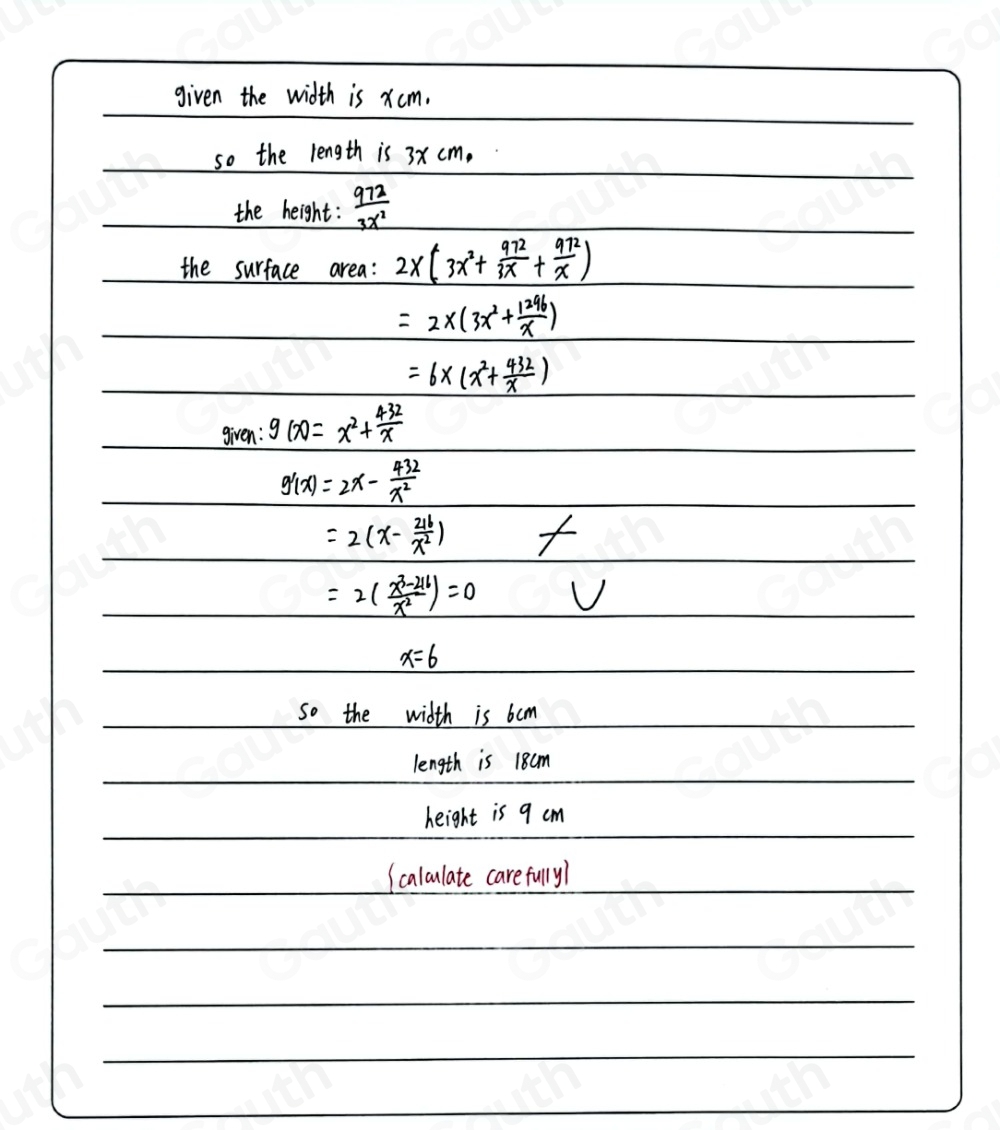 given the width is x cm.
so the length is 3x cm.
the height: 972/3x²
the surface area: 2×(3x²+972/3x+972/x)
= 2×(3x²+1296/x)
= 6×(x²+432/x)
given: g(x)= x²+432/x
g'(x)=2x-432/x²
= 2(x-216/x²)
= 2(x³-216/x²)=0
x=6
so the width is 6cm
length is 18cm
height is 9 cm
{calculate carefully}
Gauth